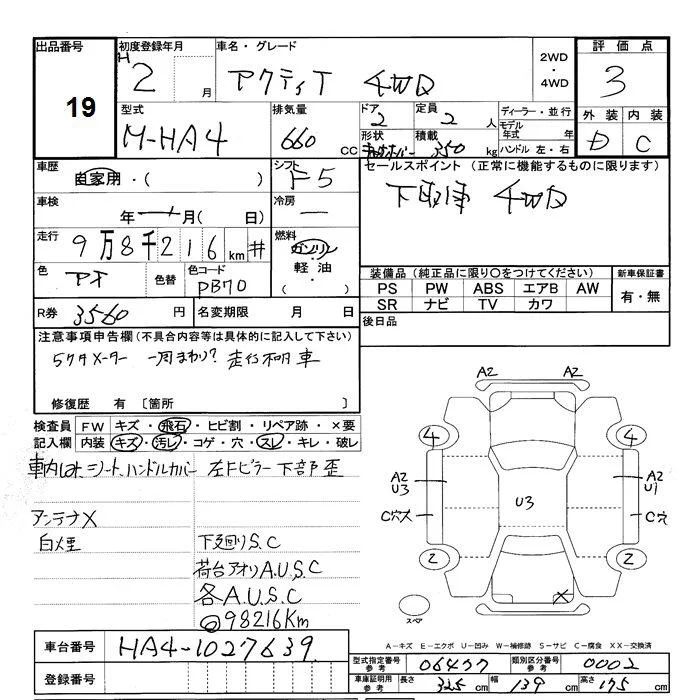 出品番号
19
初度登録年月
H 2 月
車名・グレード
アクティT 4WD
2WD
・
4WD
評価点
3
型式
M-HA4
排気量
660 CC
ドア
2
定員
2 人
形状
積載
350 kg
ディーラー・並行
モデル年式 年
ハンドル 左・右
外装 内装
D C
車歴
自家用・( )
シフト
F5
セールスポイント(正常に機能するものに限ります)
下取車 4WD
車検
年 月( )
冷房
走行
9万8千216km #
燃料
ガソリン
・
軽油
・
( )
色
アオ
色替
色コード
PB70
装備品(純正品に限り〇をつけてください)
新車保証書
PS PW ABS エアB AW
SR ナビ TV カワ
有・無
R券 3560 円
名変期限 月 日
後日品
注意事項申告欄(不具合内容等は具体的に記入して下さい)
5ケタメーター 一周まわり? 走行不明車
修復歴 有 〔箇所 〕
検査員 FW キズ・飛石・ヒビ割・リペア跡・×要
記入欄 内装 キズ・汚レ・コゲ・穴・スレ・キレ・破レ
車内 シート、ハンドルカバー 左Fピラー下部歪
アンテナX
白煙
下廻りS.C
荷台アオリA.U.S.C
各A.U.S.C
◎98216Km
A2 A2
4 4
A2
U3
C穴ス
U3
A2
U1
C穴
2 2
X
スペア
A-キズ E-エクボ U-凹み W-補修跡 S-サビ C-腐食 XX-交換済
車台番号 HA4-1027639
登録番号
型式指定番号 参考 06477
類別区分番号 参考 0002
車庫証明用 参考 長さ 325 cm 幅 139 cm 高さ 175 cm